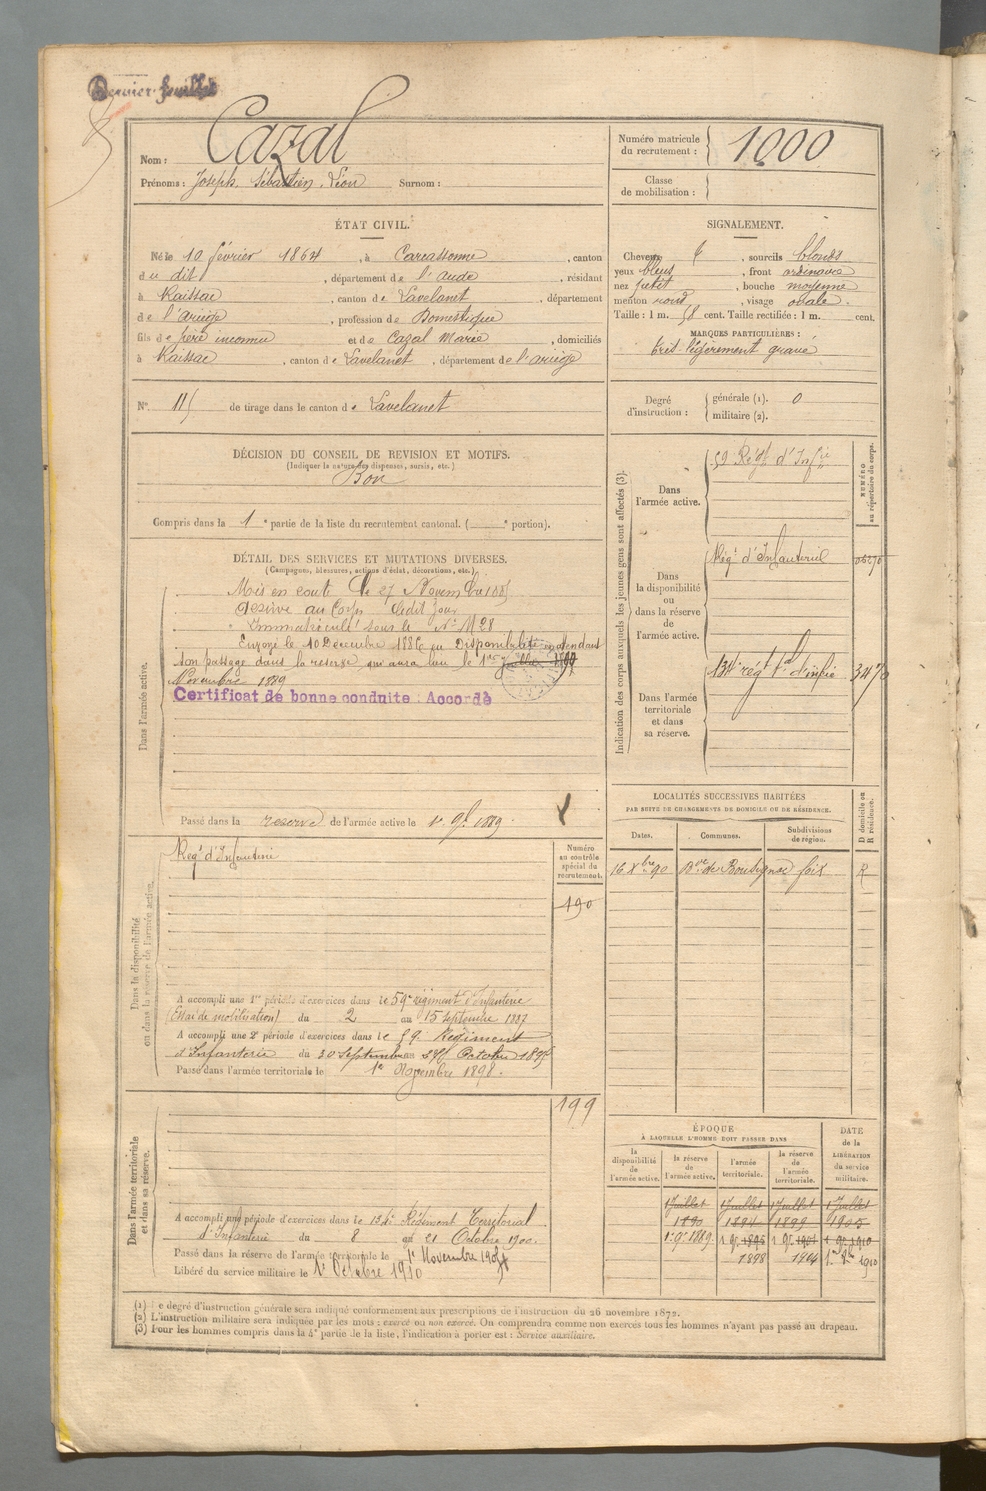 Dernier feuillet
Nom : Cazal
Prénoms : Joseph Sébastien Léon Surnom :
Numéro matricule du recrutement : 1000
Classe de mobilisation :
ÉTAT CIVIL.
Né le 10 février 1864, à Carcassonne, canton
du dit, département de l'aude, résidant
à Raissac, canton de Lavelanet, département
de l'ariège, profession de Domestique
fils de père inconnu et de Cazal Marie, domiciliés
à Raissac, canton de Lavelanet, département de l'ariège
N° 115 de tirage dans le canton de Lavelanet
SIGNALEMENT.
Cheveux, sourcils blonds
yeux bleus, front ordinaire
nez petit, bouche moyenne
menton rond, visage ovale.
Taille : 1 m. 58 cent. Taille rectifiée : 1 m. cent.
MARQUES PARTICULIÈRES :
très légèrement gravé
Degré d'instruction : générale (1). 0
militaire (2).
DÉCISION DU CONSEIL DE REVISION ET MOTIFS.
(Indiquer la nature des dispenses, sursis, etc.)
Bon
Compris dans la 1e partie de la liste du recrutement cantonal. ( e portion).
DÉTAIL DES SERVICES ET MUTATIONS DIVERSES.
(Campagnes, blessures, actions d'éclat, décorations, etc.)
Dans l'armée active.
Mis en route le 27 Novembre 1885
Arrivé au Corps ledit jour
Immatriculé sous le N°
Envoyé le 10 Décembre 1886 en Disponibilité en attendant
son passage dans la réserve, qui aura lieu le 1er Juillet
Novembre 1889
Certificat de bonne conduite : Accordé
Passé dans la réserve de l'armée active le 1r 9bre 1889
Indication des corps auxquels les jeunes gens sont affectés (3).
NUMÉRO au répertoire du corps.
Dans l'armée active.
59 Régt d'Infie
Dans la disponibilité ou dans la réserve de l'armée active.
Régt d'Infanterie
Dans l'armée territoriale et dans sa réserve.
134e régt tal d'infie 3470
LOCALITÉS SUCCESSIVES HABITÉES
PAR SUITE DE CHANGEMENTS DE DOMICILE OU DE RÉSIDENCE.
D domicile ou R résidence.
Dates. Communes. Subdivisions de région.
16 Xbre 90 foix R
Dans la disponibilité ou dans la réserve de l'armée active.
Régt d'Infanterie
Numéro au contrôle spécial du recrutement.
190
A accompli une 1re période d'exercices dans le 59e régiment d'Infanterie
(Essai de mobilisation) du 2 au 15 septembre 1887
A accompli une 2e période d'exercices dans le 59e Régiment
d'Infanterie du 30 Septembre au 27 Octobre 1895
Passé dans l'armée territoriale le 1er Novembre 1898.
Dans l'armée territoriale et dans sa réserve.
199
A accompli une période d'exercices dans le 134e Régiment Territorial
d'Infanterie du 8 au 21 Octobre 1900.
Passé dans la réserve de l'armée territoriale le 1r Novembre 1904
Libéré du service militaire le 1r Octobre 1910
ÉPOQUE
À LAQUELLE L'HOMME DOIT PASSER DANS
DATE de la LIBÉRATION du service militaire.
la disponibilité de l'armée active. la réserve de l'armée active. l'armée territoriale. la réserve de l'armée territoriale.
1 Juillet 1 Juillet 1 Juillet 1 Juillet
1890 1894 1899 1905
1r 9r 1889. 1 9r 1895 1 9r 1901 1 9r 1910
1898 1904 1910
(1) Le degré d'instruction générale sera indiqué conformément aux prescriptions de l'instruction du 26 novembre 1872.
(2) L'instruction militaire sera indiquée par les mots : exercé ou non exercé. On comprendra comme non exercés tous les hommes n'ayant pas passé au drapeau.
(3) Pour les hommes compris dans la 4e partie de la liste, l'indication à porter est : Service auxiliaire.